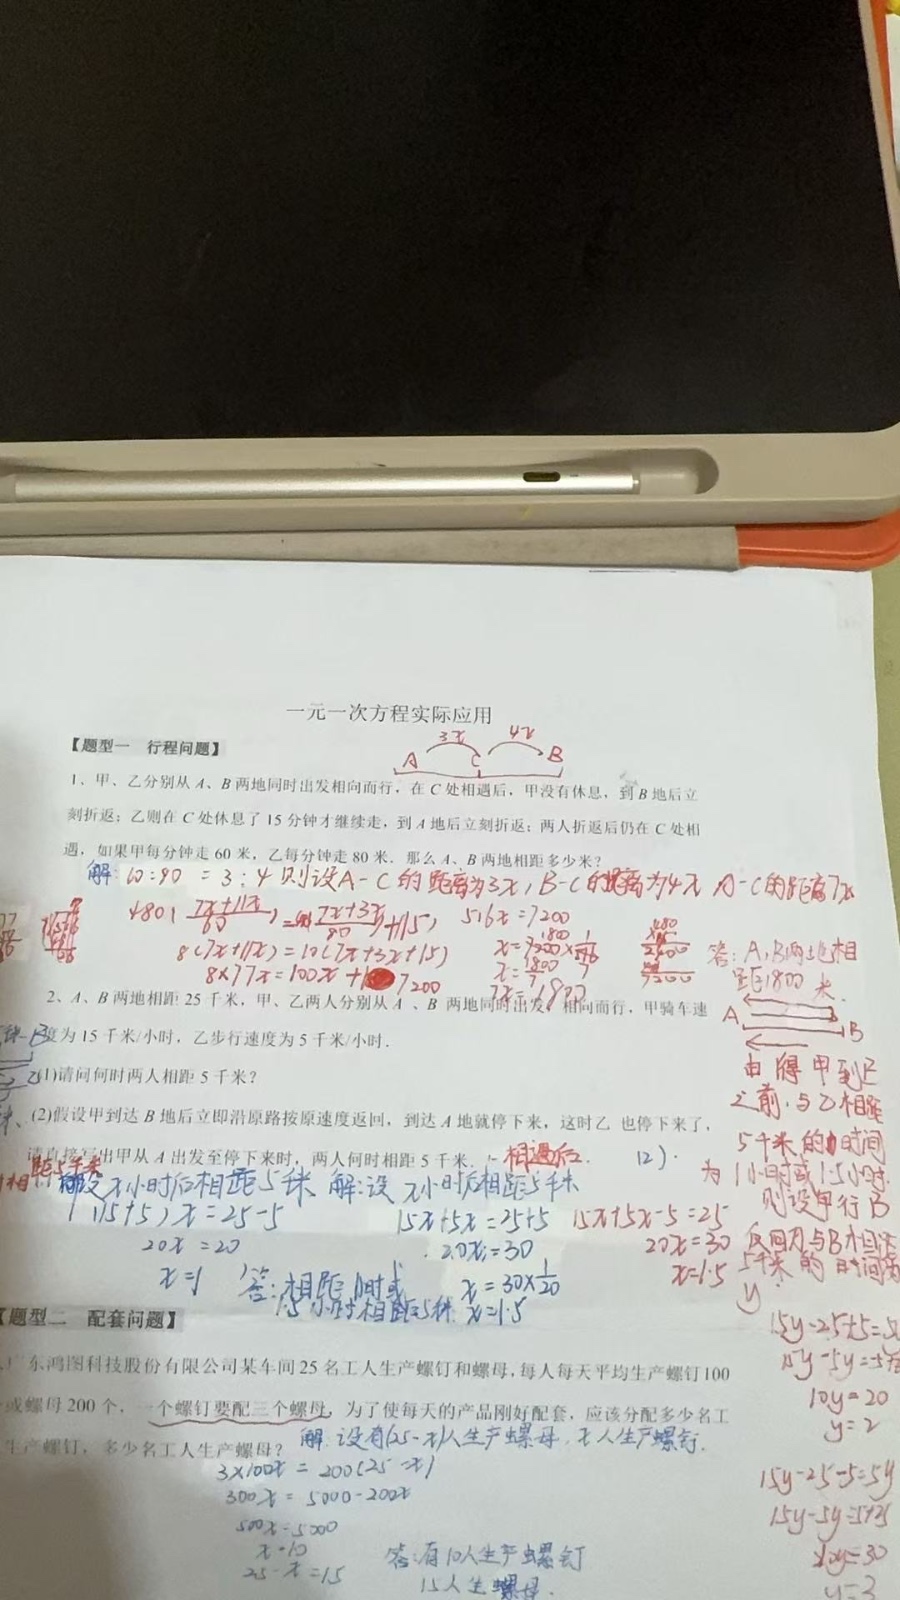 一元一次方程实际应用
【题型一 行程问题】
3x 4x
A C B
1、甲、乙分别从 A、B 两地同时出发相向而行，在 C 处相遇后，甲没有休息，到 B 地后立
刻折返；乙则在 C 处休息了 15 分钟才继续走，到 A 地后立刻折返；两人折返后仍在 C 处相
遇，如果甲每分钟走 60 米，乙每分钟走 80 米．那么 A、B 两地相距多少米？
解: = 3 : 4 则设A-C的距离为3x，B-C的距离为4x A-C的距离7x
516x=7200
8(7x+11x)=10(7x+3x+15)
8x77x=100x+
7200
答: A,B两地相
距1800米.
2、A、B 两地相距 25 千米，甲、乙两人分别从 A 、B 两地同时出发，相向而行，甲骑车速
度为 15 千米/小时，乙步行速度为 5 千米/小时．
A
B
(1)请问何时两人相距 5 千米？
(2)假设甲到达 B 地后立即沿原路按原速度返回，到达 A 地就停下来，这时乙 也停下来了，
请直接写出甲从 A 出发至停下来时，两人何时相距 5 千米．
相遇后.
设x小时后相距5千米 解:设 x小时后相距5千米
(15+5)x=25-5
15x+5x=25+5
15x+5x-5=25
20x=20
20x=30
20x=30
x=1
x=30×1/20
x=1.5
答:相距1时或
1.5小时相距5千米
x=1.5
(2).
由 得甲到B
之前与乙相距
5千米的时间
为1小时或1.5小时.
则设甲行B
5千米的时间为
y
15y-25+5=5y
10y=20
y=2
15y-25-5=5y
15y-5y=5+25
10y=30
y=3
【题型二 配套问题】
广东鸿图科技股份有限公司某车间 25 名工人生产螺钉和螺母，每人每天平均生产螺钉 100
或螺母 200 个，一个螺钉要配三个螺母．为了使每天的产品刚好配套，应该分配多少名工
生产螺钉，多少名工人生产螺母？
解:设有(25-x)人生产螺母,x人生产螺钉.
3×100x=200(25-x)
300x=5000-200x
500x=5000
x=10
25-x=15
答:有10人生产螺钉
15人生螺母.